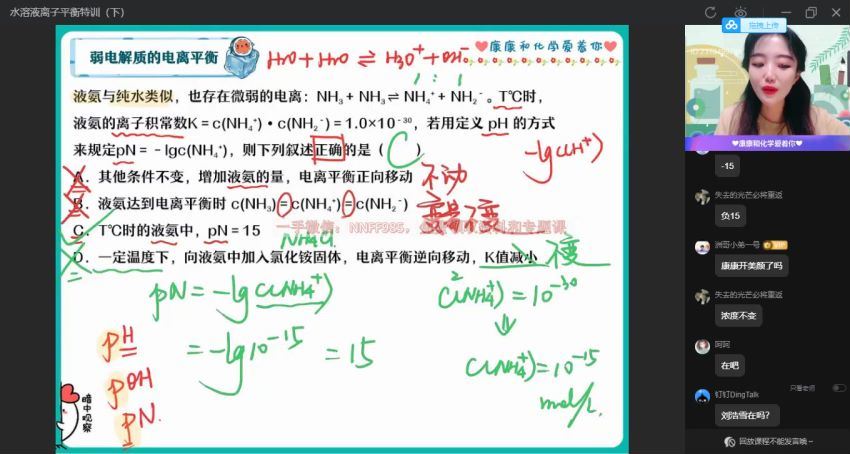 水溶液离子平衡特训（下）
拖拽上传
弱电解质的电离平衡
H₂O + H₂O ⇌ H₃O⁺ + OH⁻
康康和化学爱着你
1 : 1
液氨与纯水类似，也存在微弱的电离：NH₃ + NH₃ ⇌ NH₄⁺ + NH₂⁻。T℃时，
液氨的离子积常数K = c(NH₄⁺)·c(NH₂⁻) = 1.0×10⁻³⁰，若用定义 pH 的方式
来规定pN = －lgc(NH₄⁺)，则下列叙述正确的是（ C ）
-lgc(H⁺)
A．其他条件不变，增加液氨的量，电离平衡正向移动 不动
B．液氨达到电离平衡时 c(NH₃) = c(NH₄⁺) = c(NH₂⁻) 不变
C．T℃时的液氨中，pN = 15
一手微信：NNFF985，
NH₄Cl
D．一定温度下，向液氨中加入氯化铵固体，电离平衡逆向移动，K值减小 不变
pN = -lg c(NH₄⁺)
c²(NH₄⁺) = 10⁻³⁰
= -lg10⁻¹⁵ = 15
c(NH₄⁺) = 10⁻¹⁵
mol/L
pH
pOH
pN
暗中观察
康康和化学爱着你
-15
失去的光芒必将重返
负15
洲哥小弟一号
康康开美颜了吗
失去的光芒必将重返
浓度不变
阿阿
在吧
只看老师
钉钉DingTalk
刘浩雪在吗？
回放课程不能发言噢~